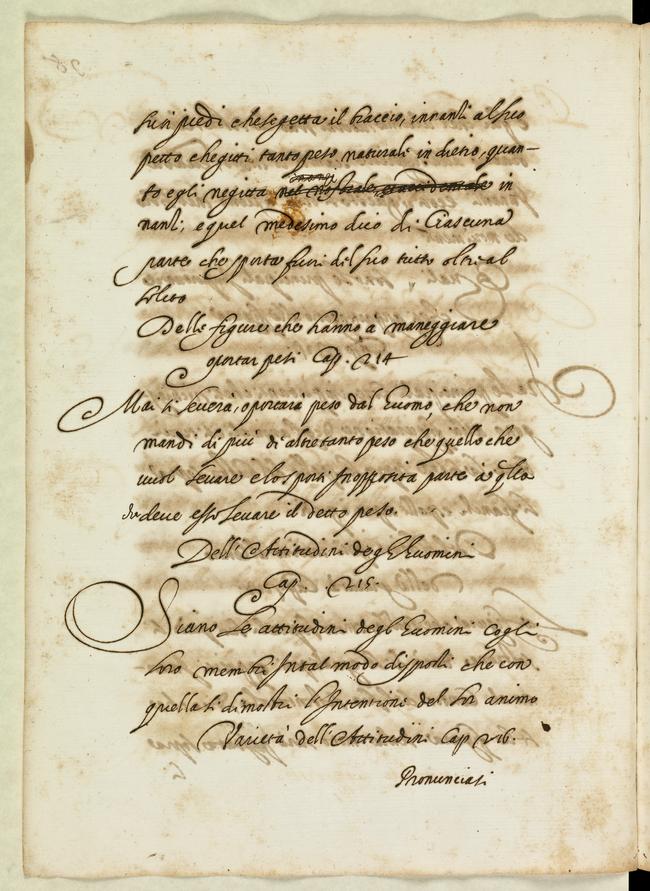 suoi piedi che se getta il braccio, innanti al suo
petto che gitti tanto peso naturale in dietro, quan-
to egli ne gitta in
nanti, e quel medesimo dico di Ciascuna
parte che sporta fuori del suo tutto oltre al
solito
Delle figure che hanno à maneggiare
ò portar pesi Cap. 214
Mai si leverà, o portarà peso dal'huomo, che non
mandi di più di altretanto peso che quello che
vuol levare e lo sporti In opposita parte à q̃lla
dv̓ deve esso levare il detto peso.
Dell'Attitudini degl'Huomini
Cap. 215.
Siano Le attitudini degl'huomini cogli
loro membri In tal modo disposti che con
quella si dimostri l'Intentione del lor animo
Varietà dell'Attitudini Cap 216.
Pronunciasi